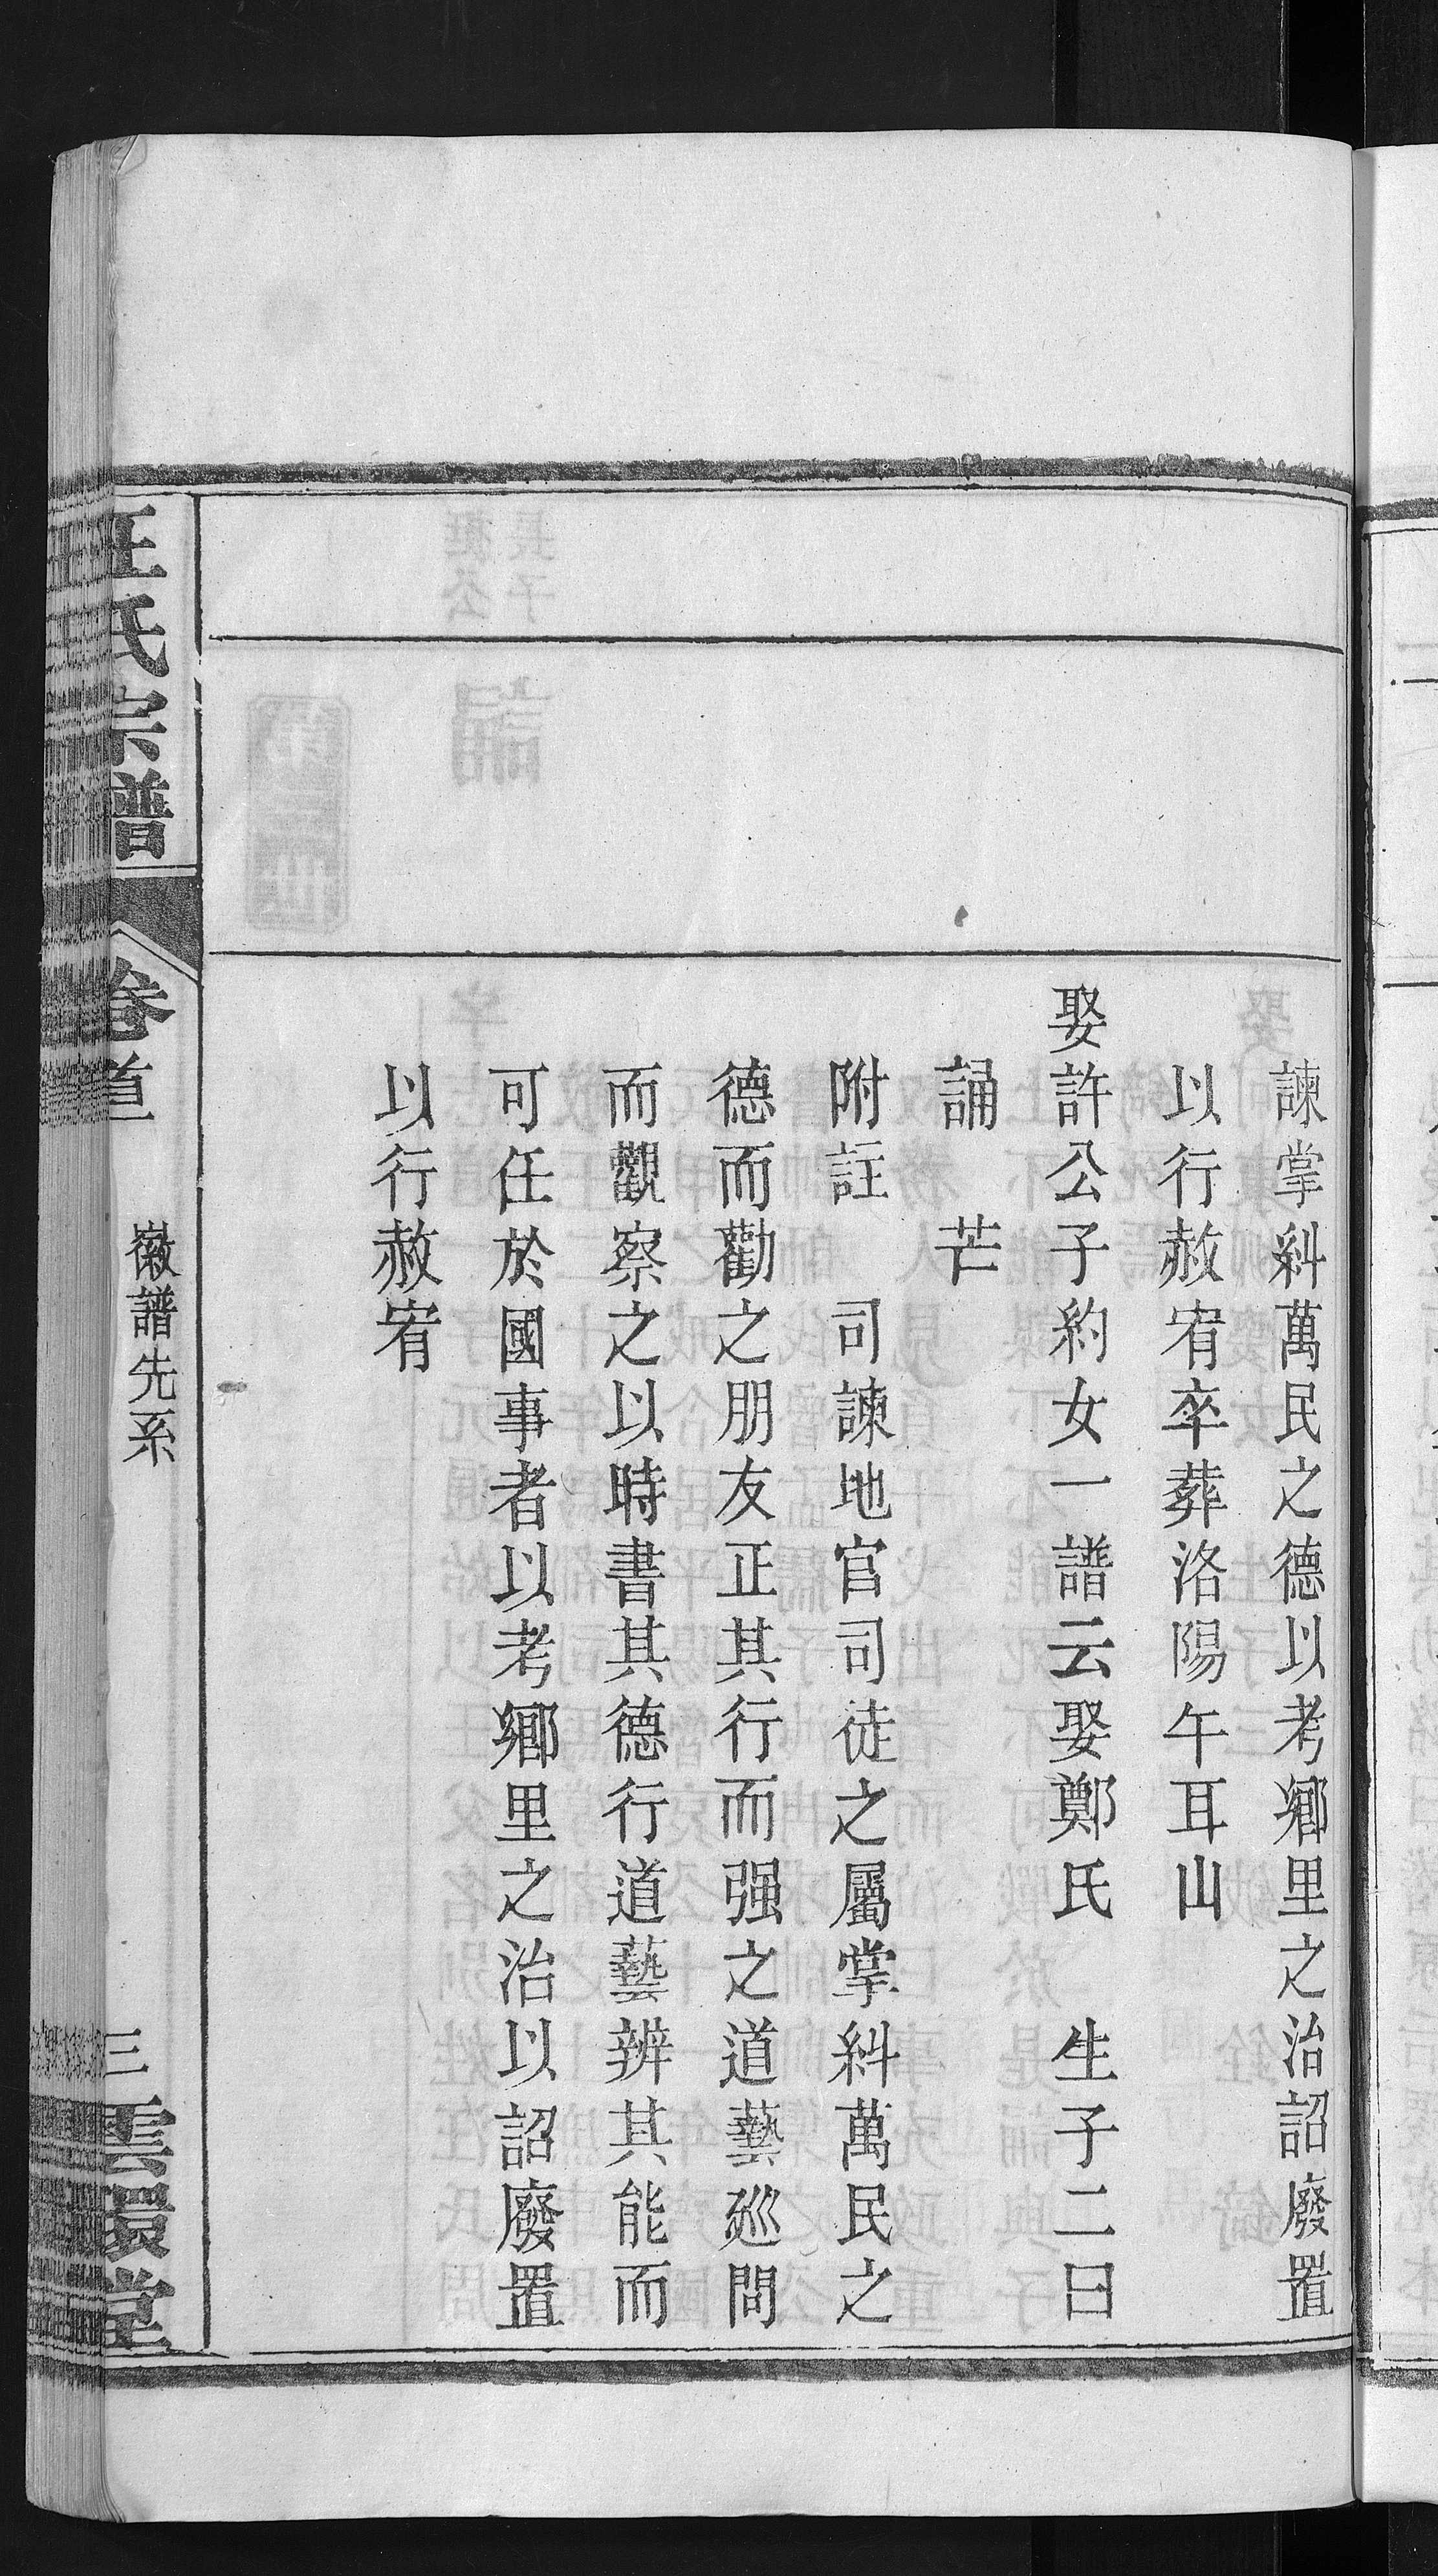 諫掌糾萬民之德以考鄉里之治詔廢置
以行赦宥卒葬洛陽午耳山
娶許公子約女一譜云娶鄭氏　生子二曰
誦　芒
附註　司諫地官司徒之屬掌糾萬民之
德而勸之朋友正其行而强之道藝廵問
而觀察之以時書其德行道藝辨其能而
可任於國事者以考鄉里之治以詔廢置
以行赦宥
汪氏宗譜
卷首
徽譜先系
三
雲環堂